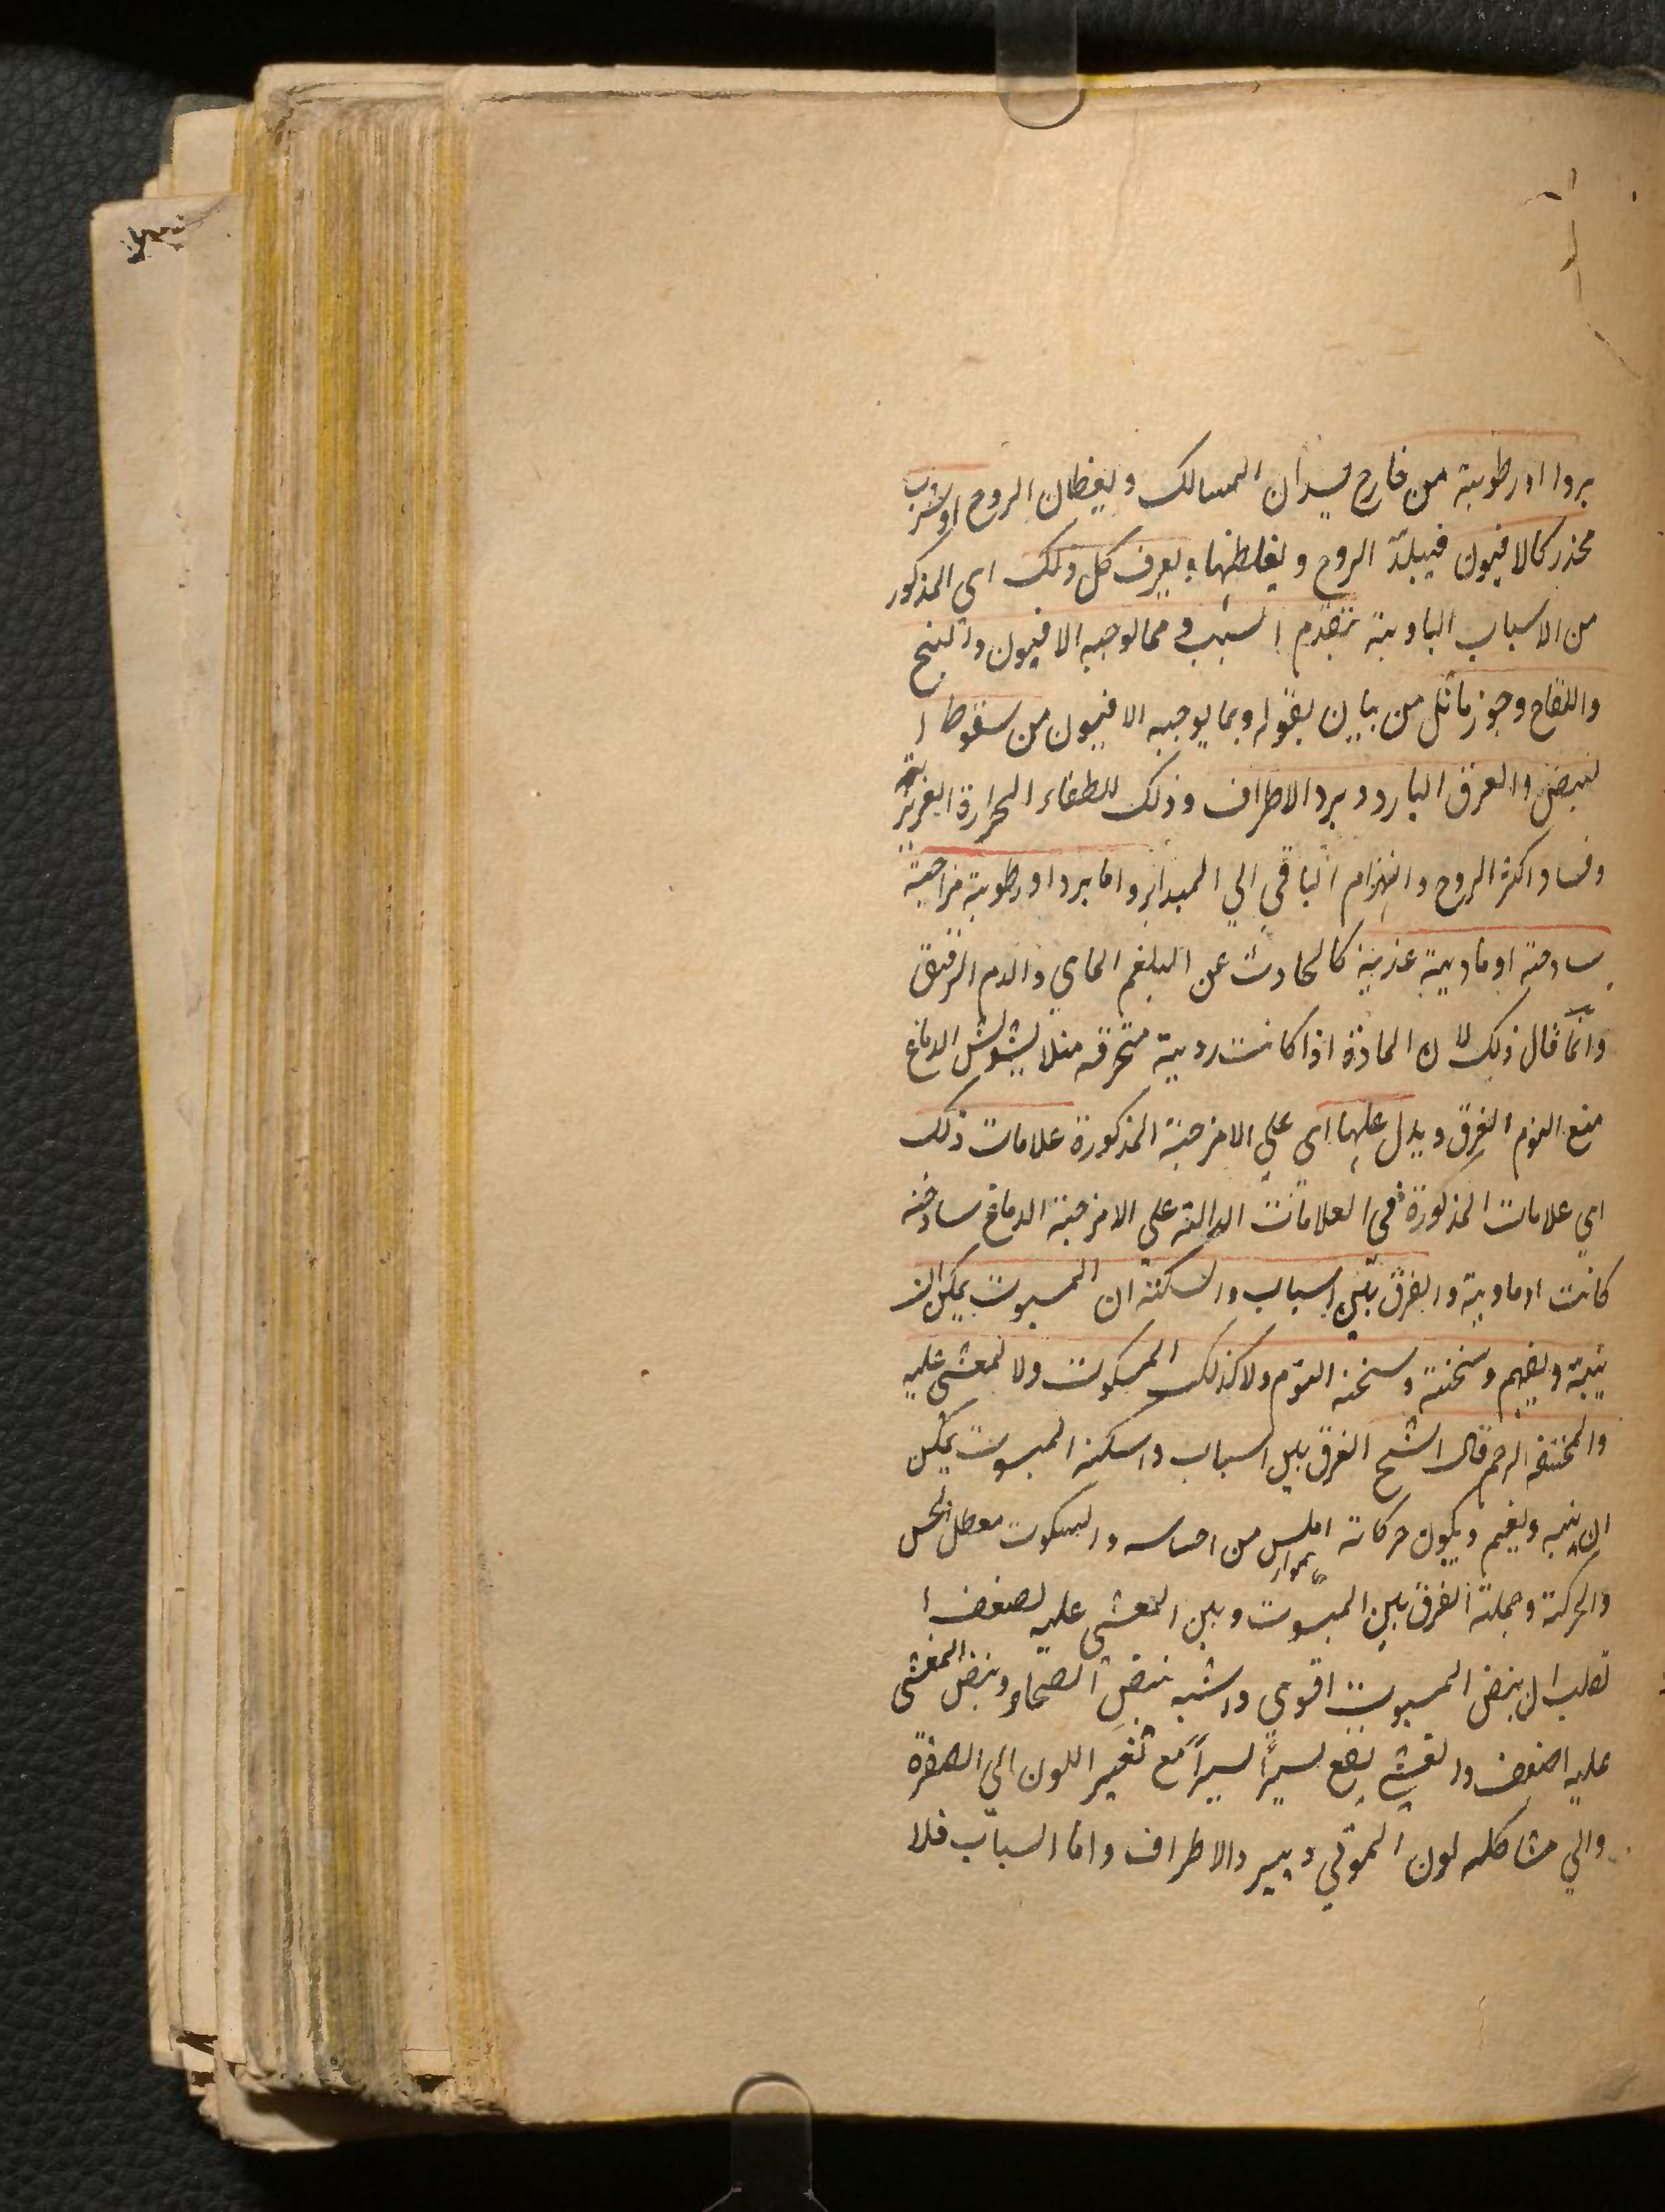 بردا اورطوبة من خارج يسدان المسالك ويغلظان الروح اوشرب
مخدر كالافيون فيبلد الروح ويغلظها ويعرف كل ذلك اى المذكور
من الاسباب البادية بتقدم السبب ومما لوجبه الافيون والبنج
واللفاح وجوز ماثل من بيان بقوله وبما يوجبه الافيون من سقوط ا
لنبض والعرق البارد وبرد الاطراف وذلك للطفاء الحرارة الغريزية
وفساد اكثر الروح وانهزام الباقى الي المبداء واما بردا ورطوبة مزاجية
ساذجة او مادية عذبة كالحادث عن البلغم المايي والدم الرقيق
وانما قال ذلك لان المادة اذا كانت ردية محترقة مثلا يشوش الدماغ
منع النوم الغرق ويدل عليها اى علي الامزجة المذكورة علامات ذلك
اي علامات المذكورة في العلامات الدالة علي الامزجة الدماغ ساذجة
كانت اومادية والفرق بين السبات والسكتة ان المسبوت يمكن ان
ينبه ويفهم وسخنته سخنة النوم ولا كذلك المسكوت ولا لمغشى عليه
والمختنقة الرحم قال الشيخ الفرق بين السبات والسكتة المسبوت يمكن
ان ينبه ويفهم ويكون حركاته املس من احساسه والمسكوت معطل الحس
والحركة وجملة الفرق بين المسبوت وبين المغشى عليه لضعف ا
لقلب ان نبض المسبوت اقوى واشبه بنبض الصحاء ونبض المغشى
عليه اضعف والغشى يقع يسيرًا يسيرًا مع تغير اللون الى الصفرة
والي مشاكلة لون الموتي وببرد الاطراف واما السبات فلا